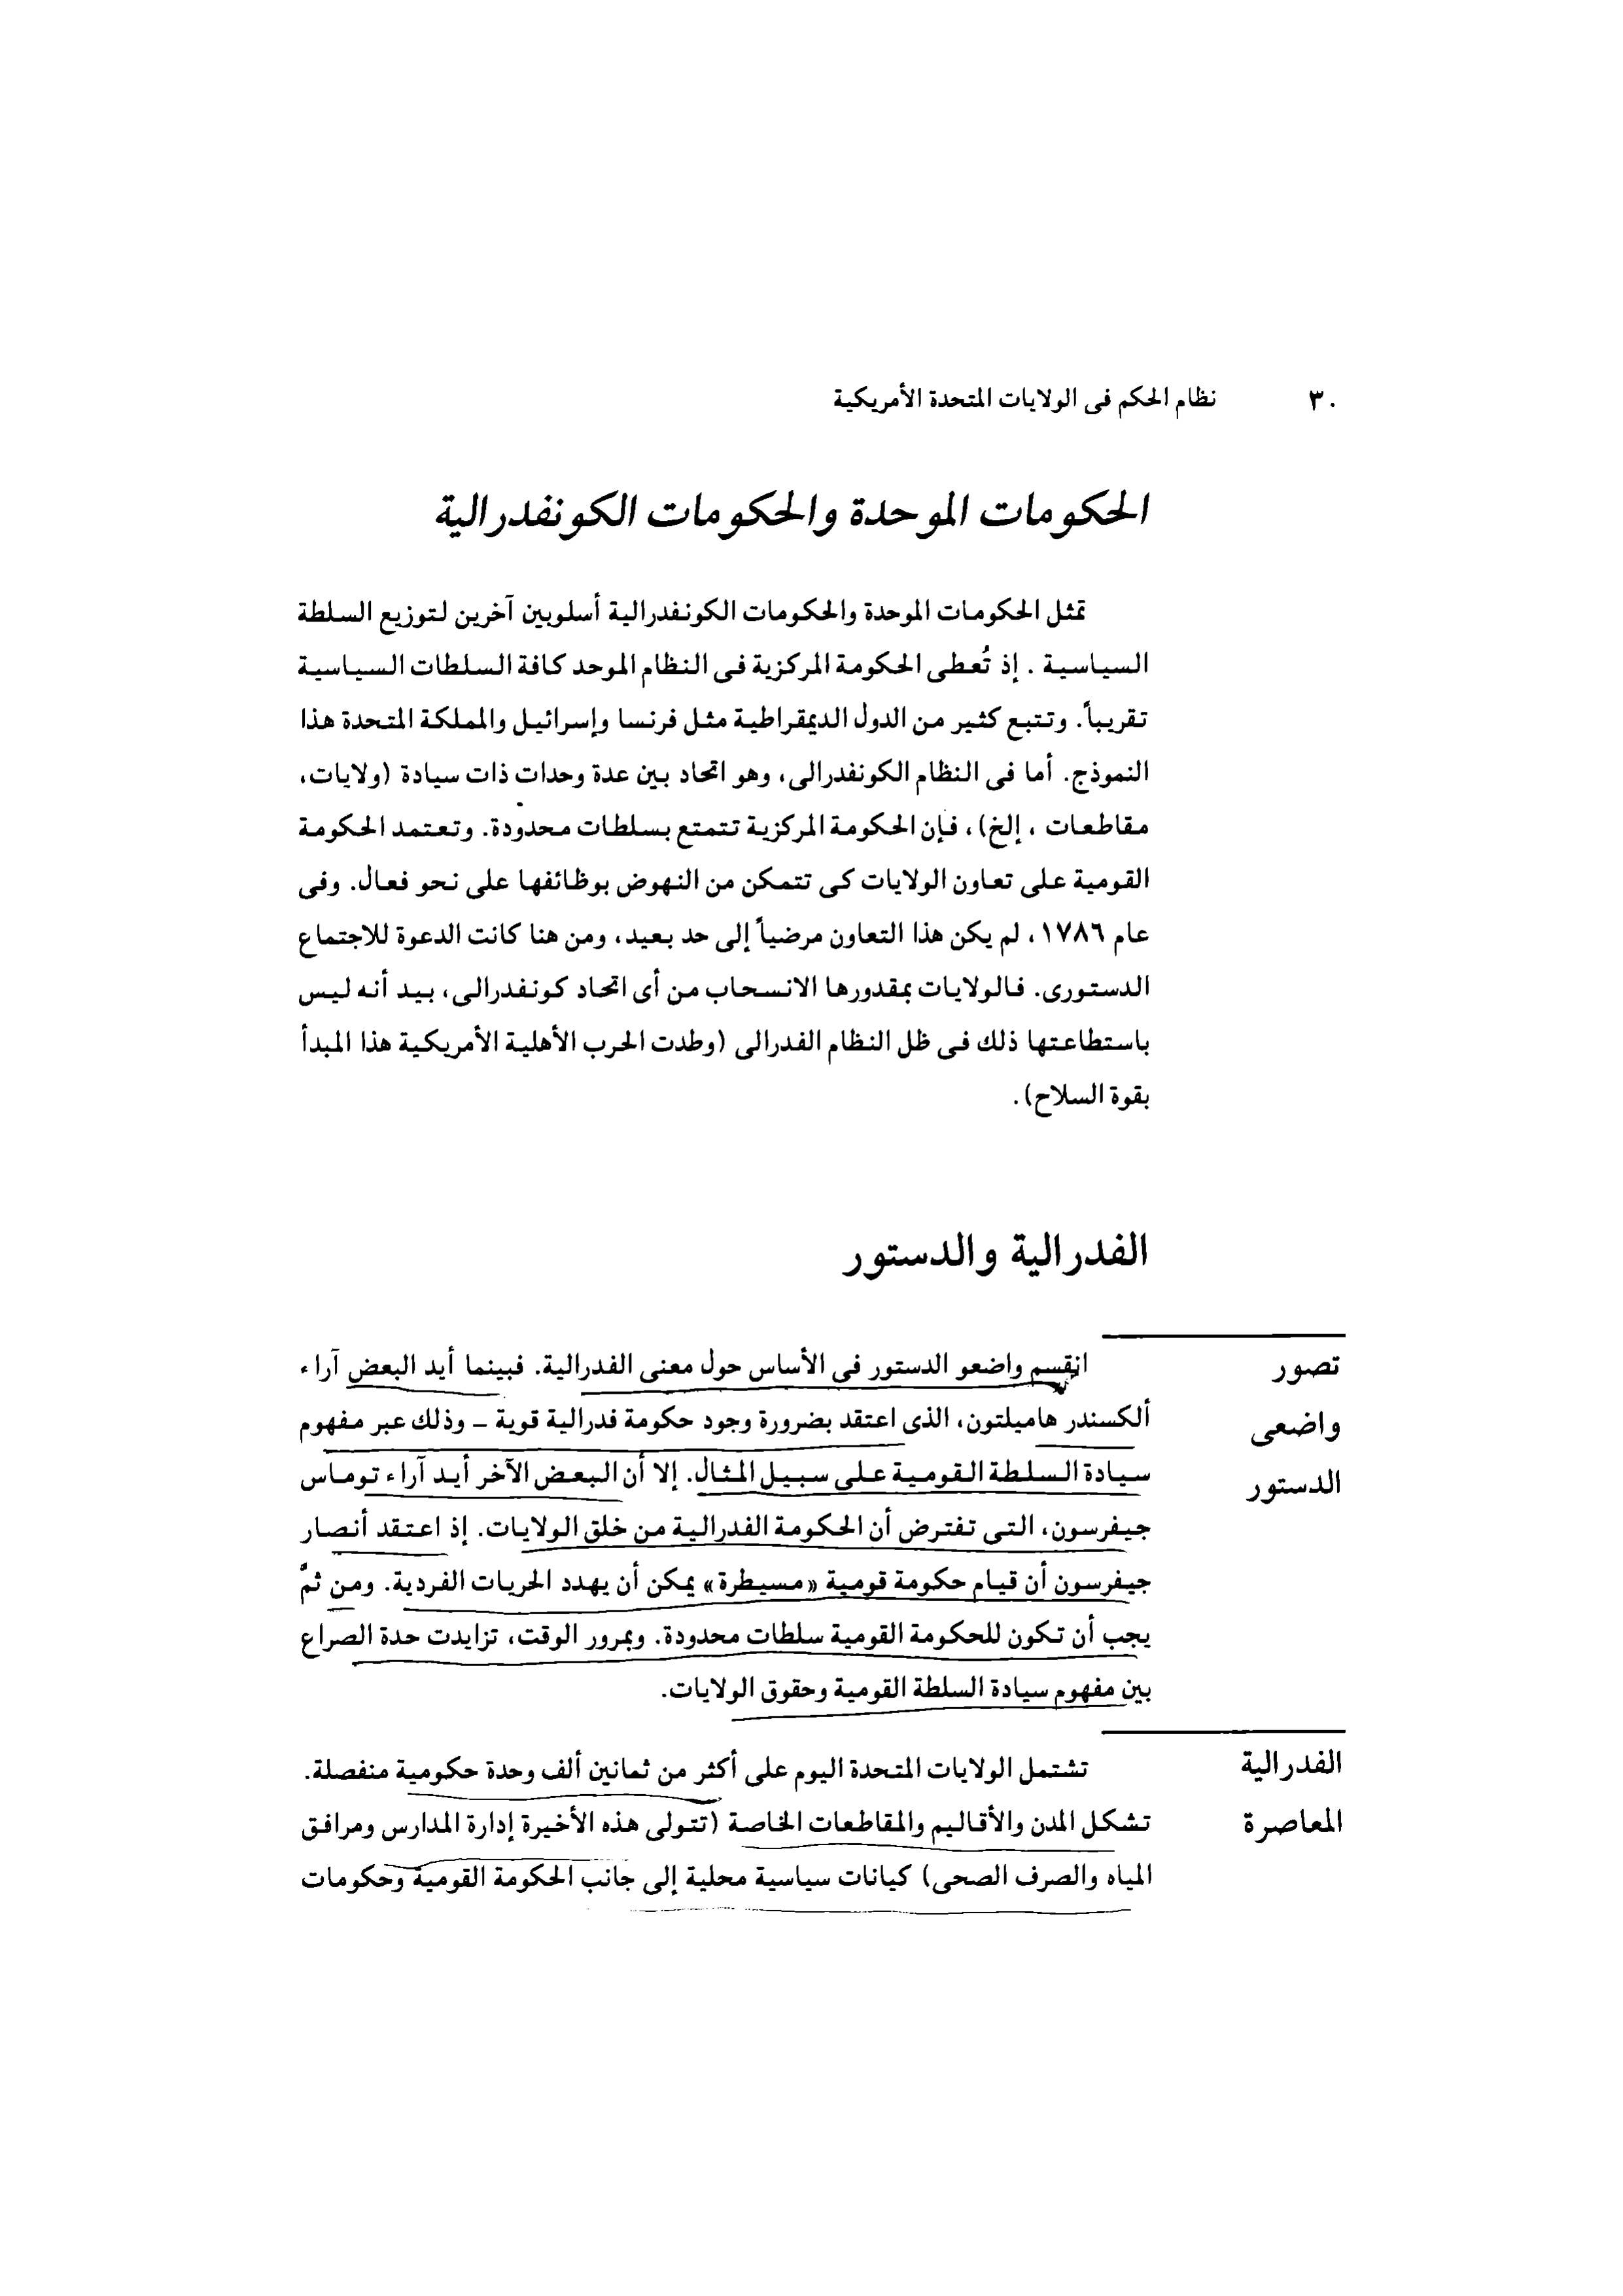 ٣٠ نظام الحكم فى الولايات المتحدة الأمريكية
الحكومات الموحدة والحكومات الكونفدرالية
تمثل الحكومات الموحدة والحكومات الكونفدرالية أسلوبين آخرين لتوزيع السلطة
السياسية . إذ تُعطى الحكومة المركزية فى النظام الموحد كافة السلطات السياسية
تقريباً. وتتبع كثير من الدول الديمقراطية مثل فرنسا وإسرائيل والمملكة المتحدة هذا
النموذج. أما فى النظام الكونفدرالى، وهو اتحاد بين عدة وحدات ذات سيادة (ولايات،
مقاطعات ، إلخ) ، فإن الحكومة المركزية تتمتع بسلطات محدودة. وتعتمد الحكومة
القومية على تعاون الولايات كى تتمكن من النهوض بوظائفها على نحو فعال. وفى
عام ١٧٨٦، لم يكن هذا التعاون مرضياً إلى حد بعيد، ومن هنا كانت الدعوة للاجتماع
الدستورى. فالولايات بمقدورها الانسحاب من أى اتحاد كونفدرالى، بيد أنه ليس
باستطاعتها ذلك فى ظل النظام الفدرالى (وطدت الحرب الأهلية الأمريكية هذا المبدأ
بقوة السلاح) .
الفدرالية والدستور
تصور
واضعى
الدستور
انقسم واضعو الدستور فى الأساس حول معنى الفدرالية. فبينما أيد البعض آراء
ألكسندر هاميلتون، الذى اعتقد بضرورة وجود حكومة فدرالية قوية - وذلك عبر مفهوم
سيادة السلطة القومية على سبيل المثال. إلا أن البعض الآخر أيد آراء توماس
جيفرسون، التى تفترض أن الحكومة الفدرالية من خلق الولايات. إذ اعتقد أنصار
جيفرسون أن قيام حكومة قومية «مسيطرة» يمكن أن يهدد الحريات الفردية. ومن ثمَّ
يجب أن تكون للحكومة القومية سلطات محدودة. وبمرور الوقت، تزايدت حدة الصراع
بين مفهوم سيادة السلطة القومية وحقوق الولايات.
الفدرالية
المعاصرة
تشتمل الولايات المتحدة اليوم على أكثر من ثمانين ألف وحدة حكومية منفصلة.
تشكل المدن والأقاليم والمقاطعات الخاصة (تتولى هذه الأخيرة إدارة المدارس ومرافق
المياه والصرف الصحى) كيانات سياسية محلية إلى جانب الحكومة القومية وحكومات